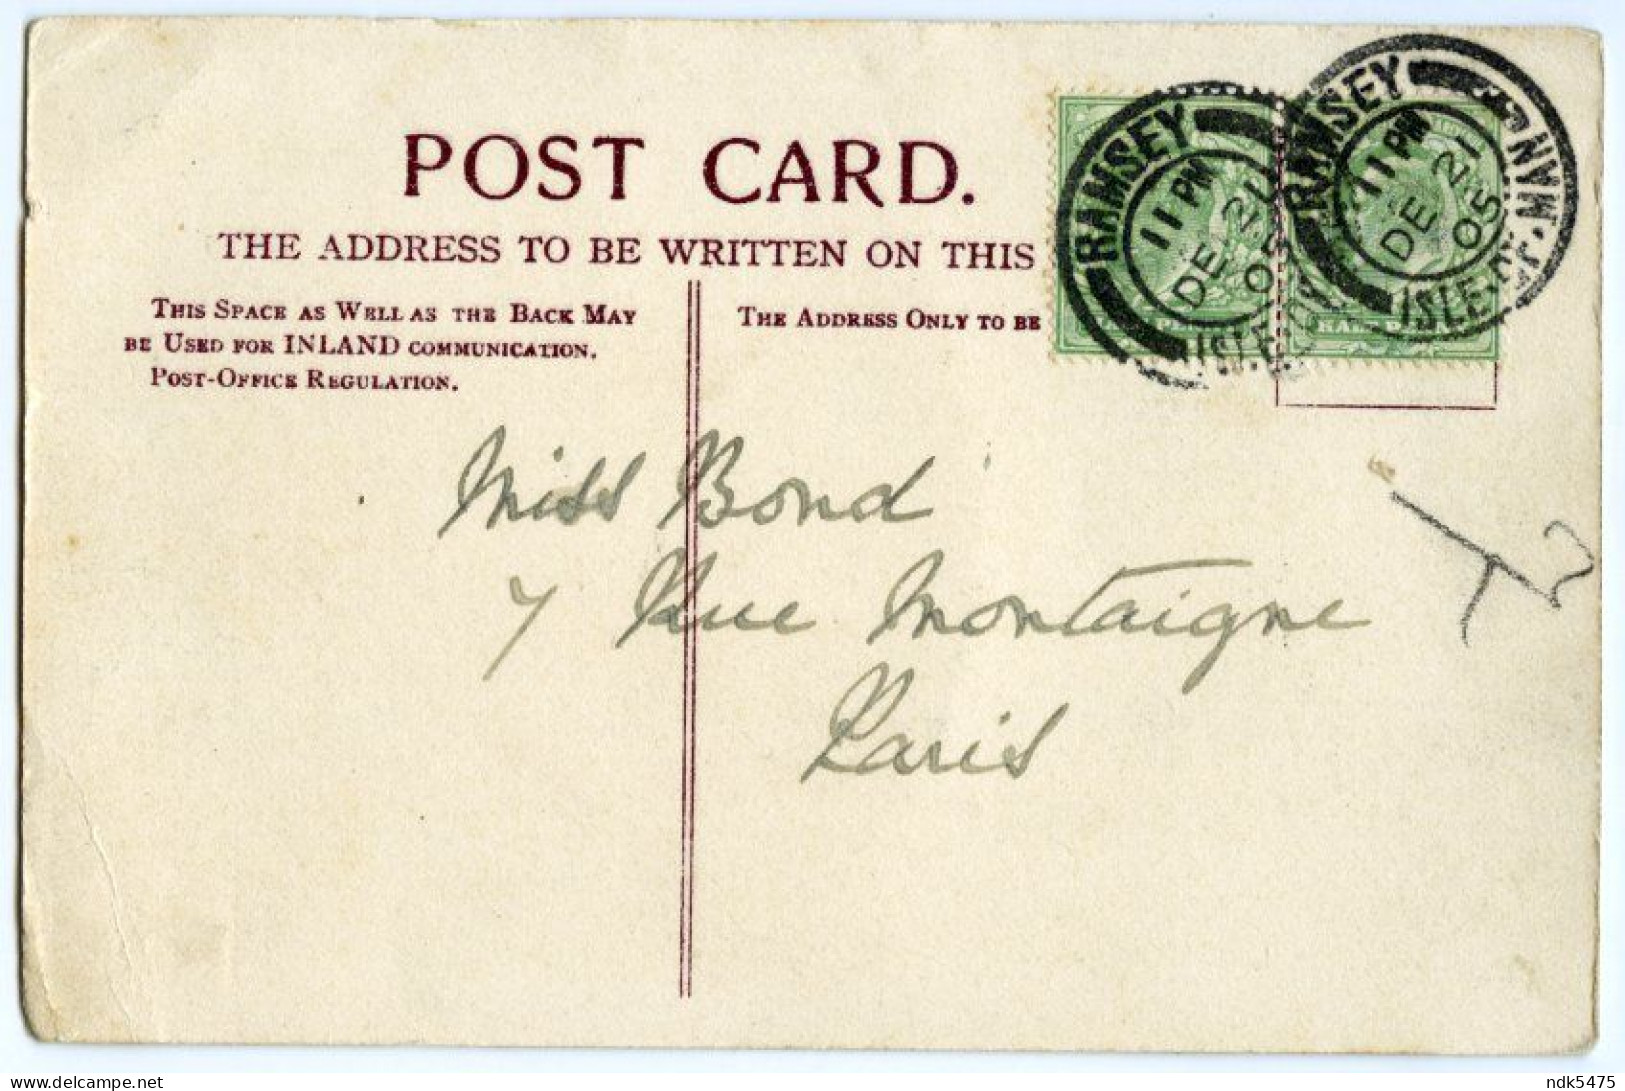 POST CARD.
THE ADDRESS TO BE WRITTEN ON THIS
THIS SPACE AS WELL AS THE BACK MAY
BE USED FOR INLAND COMMUNICATION.
POST-OFFICE REGULATION.
THE ADDRESS ONLY TO BE
RAMSEY
11 PM
DE 21
05
ISLE.OF
RAMSEY
11 PM
DE 21
05
ISLE.OF.MAN
Miss Bond
7 Rue Montaigne
Paris
ndk5475